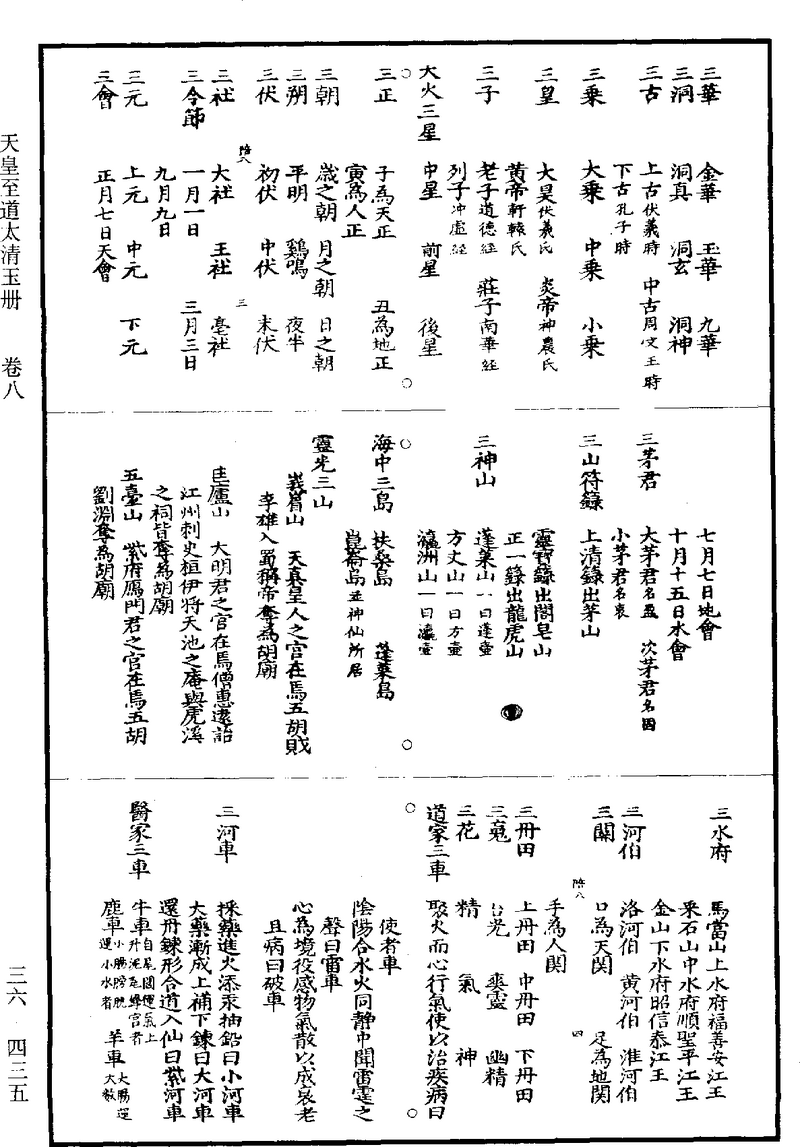 三華　金華　玉華　九華
三洞　洞真　洞玄　洞神
三古　上古伏羲時　中古周文王時
下古孔子時
三乘　大乘　中乘　小乘
三皇　大昊伏羲氏　炎帝神農氏
黃帝軒轅氏
三子　老子道德經　莊子南華經
列子冲虛經
大火三星　中星　前星　後星
三正　子為天正　丑為地正
寅為人正
三朝　歲之朝　月之朝　日之朝
三朔　平明　鷄鳴　夜半
三伏　初伏　中伏　末伏
陪八　三
三社　大社　王社　亳社
三令節　一月一日　三月三日
九月九日
三元　上元　中元　下元
三會　正月七日天會
七月七日地會
十月十五日水會
三茅君　大茅君名盈　次茅君名固
小茅君名衷
三山符籙　上清籙出茅山
靈寶籙出閤皂山
正一籙出龍虎山
三神山　蓬萊山一曰蓬壺
方丈山一曰方壺
瀛洲山一曰瀛壺
海中三島　扶桑島　蓬萊島
崑崙島並神仙所居
靈光三山
峩眉山　天真皇人之宮在焉五胡賊
李雄入蜀稱帝奪為胡廟
匡廬山　大明君之宮在焉僧惠遠詒
江州刺史桓伊將天池之庵與虎溪
之祠皆奪為胡廟
五臺山　紫府鴈門君之宮在焉五胡
劉淵奪為胡廟
三水府　馬當山上水府福善安江王
采石山中水府順聖平江王
金山下水府昭信泰江王
三河伯　洛河伯　黃河伯　淮河伯
三關　口為天関　足為地関
陪八　四
手為人関
三丹田　上丹田　中丹田　下丹田
三魂　台光　爽靈　幽精
三花　精　氣　神
道家三車　聚火而心行氣使以治疾病曰
使者車
陰陽合水火同靜中聞雷霆之
聲曰雷車
心為境役感物氣散以成衰老
且病曰破車
三河車　採藥進火添汞抽鉛曰小河車
大藥漸成上補下鍊曰大河車
還丹鍊形合道入仙曰紫河車
醫家三車　牛車自尾閭運氣上升泥丸絳宮者　羊車大腸運大敷
鹿車小腸膀胱運小水者
天皇至道太清玉冊　卷八
三六　四三五